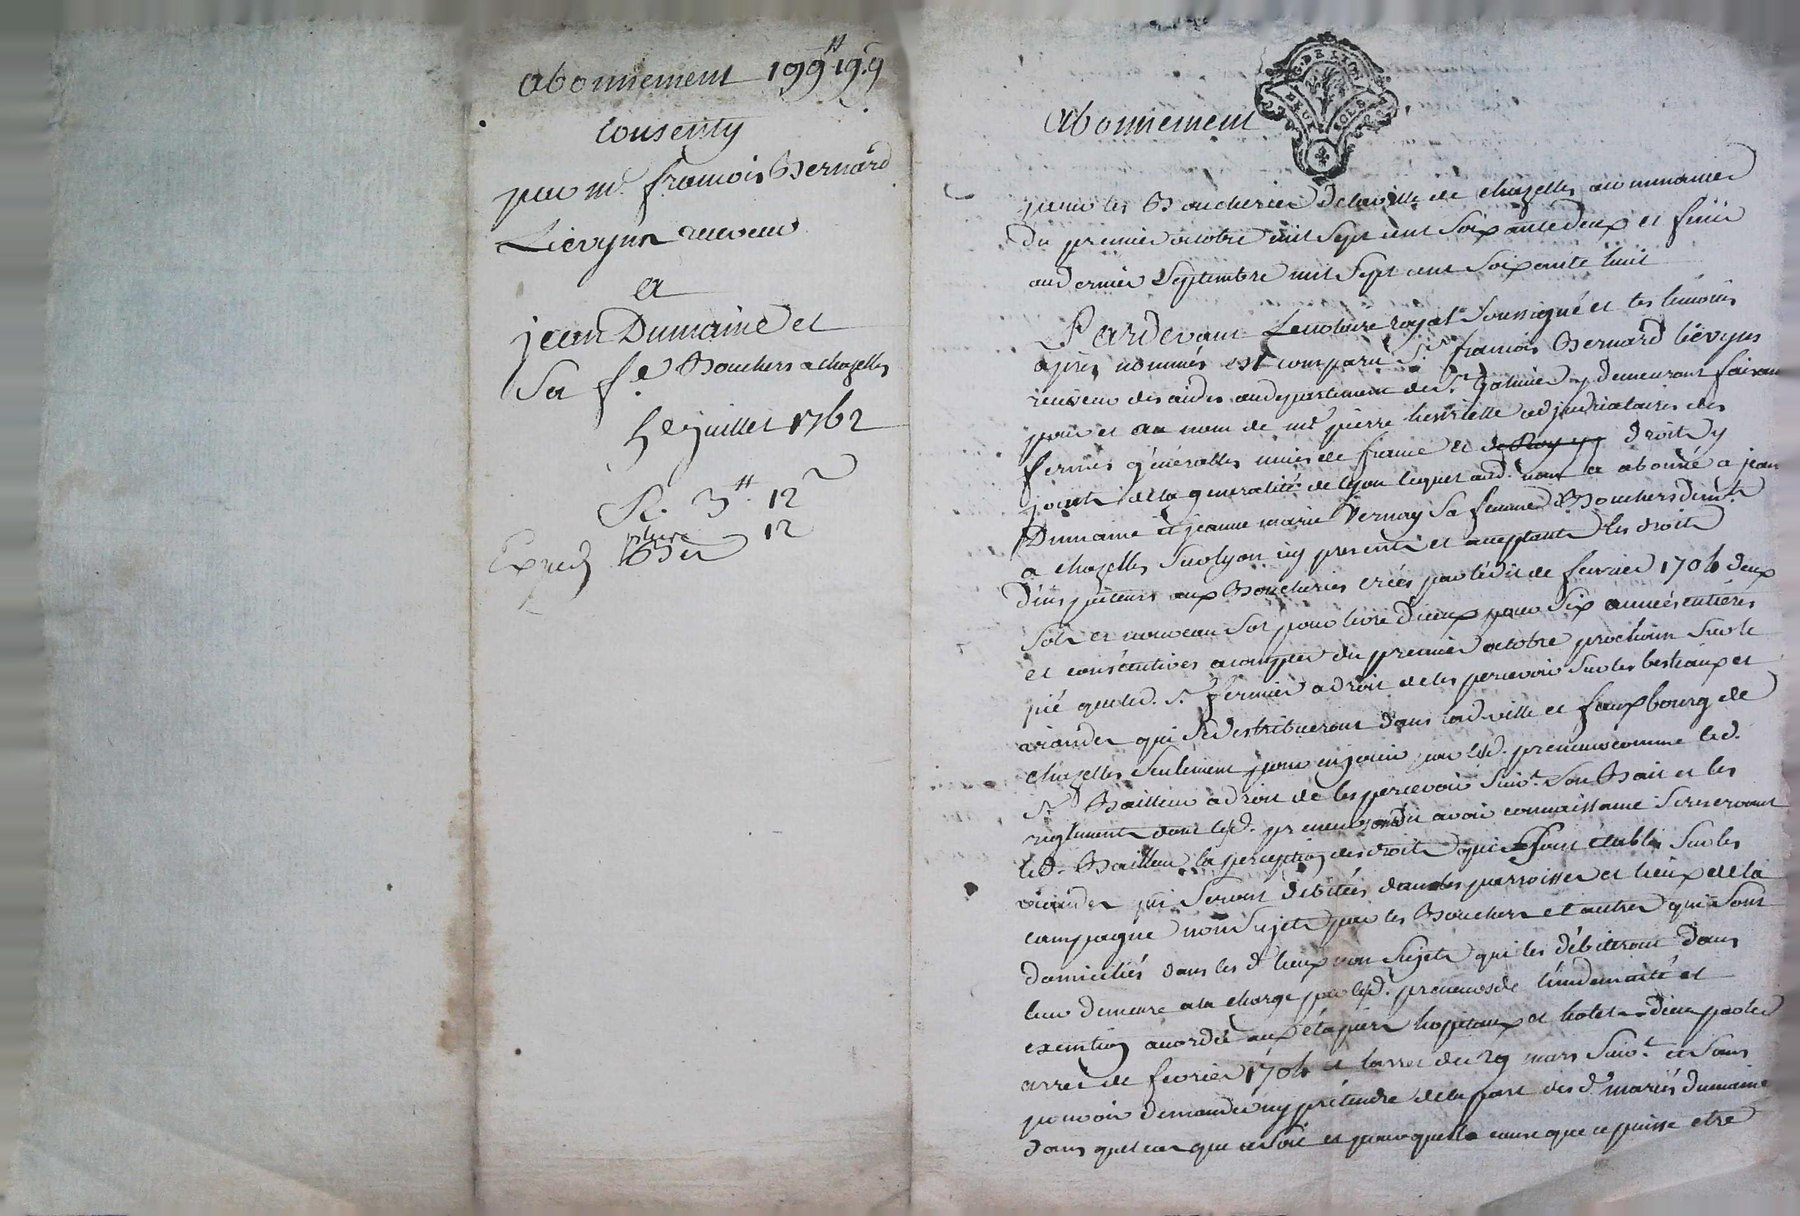 abonnement 199ᵗᵗ 19ˢ 9
consenty
par mʳ. francois Bernard
Lievyns receveur
a
jean Dumaine et
Sa fᵉ Bouchers a chazelles
5ᵉ juillet 1762
R. 3ᵗᵗ. 12ˢ
Exped 12
G. DE LYON
DEUX SOLS
abonnement
pour les Boucheries de la ville de chazelles a commancer
du premier octobre mil sept cent soixante deux et finir
au dernier Septembre mil Sept cent Soixante huit
Pardevant Le notaire royal Soussigné et les temoins
apres nommés est comparu Sʳ. francois Bernard liévyns
receveur des aides au departement de Sᵗ. Galmier y demeurant faisant
pour et au nom de mᵉ pierre henriette adjudicataires des
fermes g'eneralles unies de france et droits y
joints de la generalité de lyon lequel aud. nom a abonné a jean
Dumaine et jeanne marie Vernay Sa femme Bouchers demᵗˢ
a chazelles Sur lyon icy presents et acceptants les droits
d'inspecteurs aux Boucheries créés par l'édit de fevrier 1704 deux
sols et nouveau Sol pour livre d'iceux pour Six années entières
et consécutives a compter du premier octobre prochain Sur le
pié que led. Sʳ. fermier a droit de les percevoir Sur les bestiaux et
viandes qui Se distribueront dans lad. ville et fauxbourg de
chazelles Seulement pour en jouir par lesd. preneurs comme led.
Sʳ. Bailleur a droit de les percevoir Suivᵗ. Son Bail et les
reglements dont lesd. preneurs ont dit avoir connaissance Se reservant
led. Bailleur la perception des droits qui Sont établis Sur les
viandes qui Seront débitées dans les parroisses et lieux de la
campagne non Sujets par les Bouchers et autres qui Sont
domiciliés dans les dˢ. lieux non Sujets qui les débiteront dans
leur demeure a la charge par lesd. preneurs de l'indemnité et
exemption accordée aux étapiers hopitaux et hotels-dieu par led.
arret de fevrier 1704 et l'arret du 29 mars Suivᵗ. et Sans
pouvoir demander ny prétendre de la part des dˢ. mariés Dumaine
dans quel cas que ce Soit et pour quelle cause que ce puisse etre